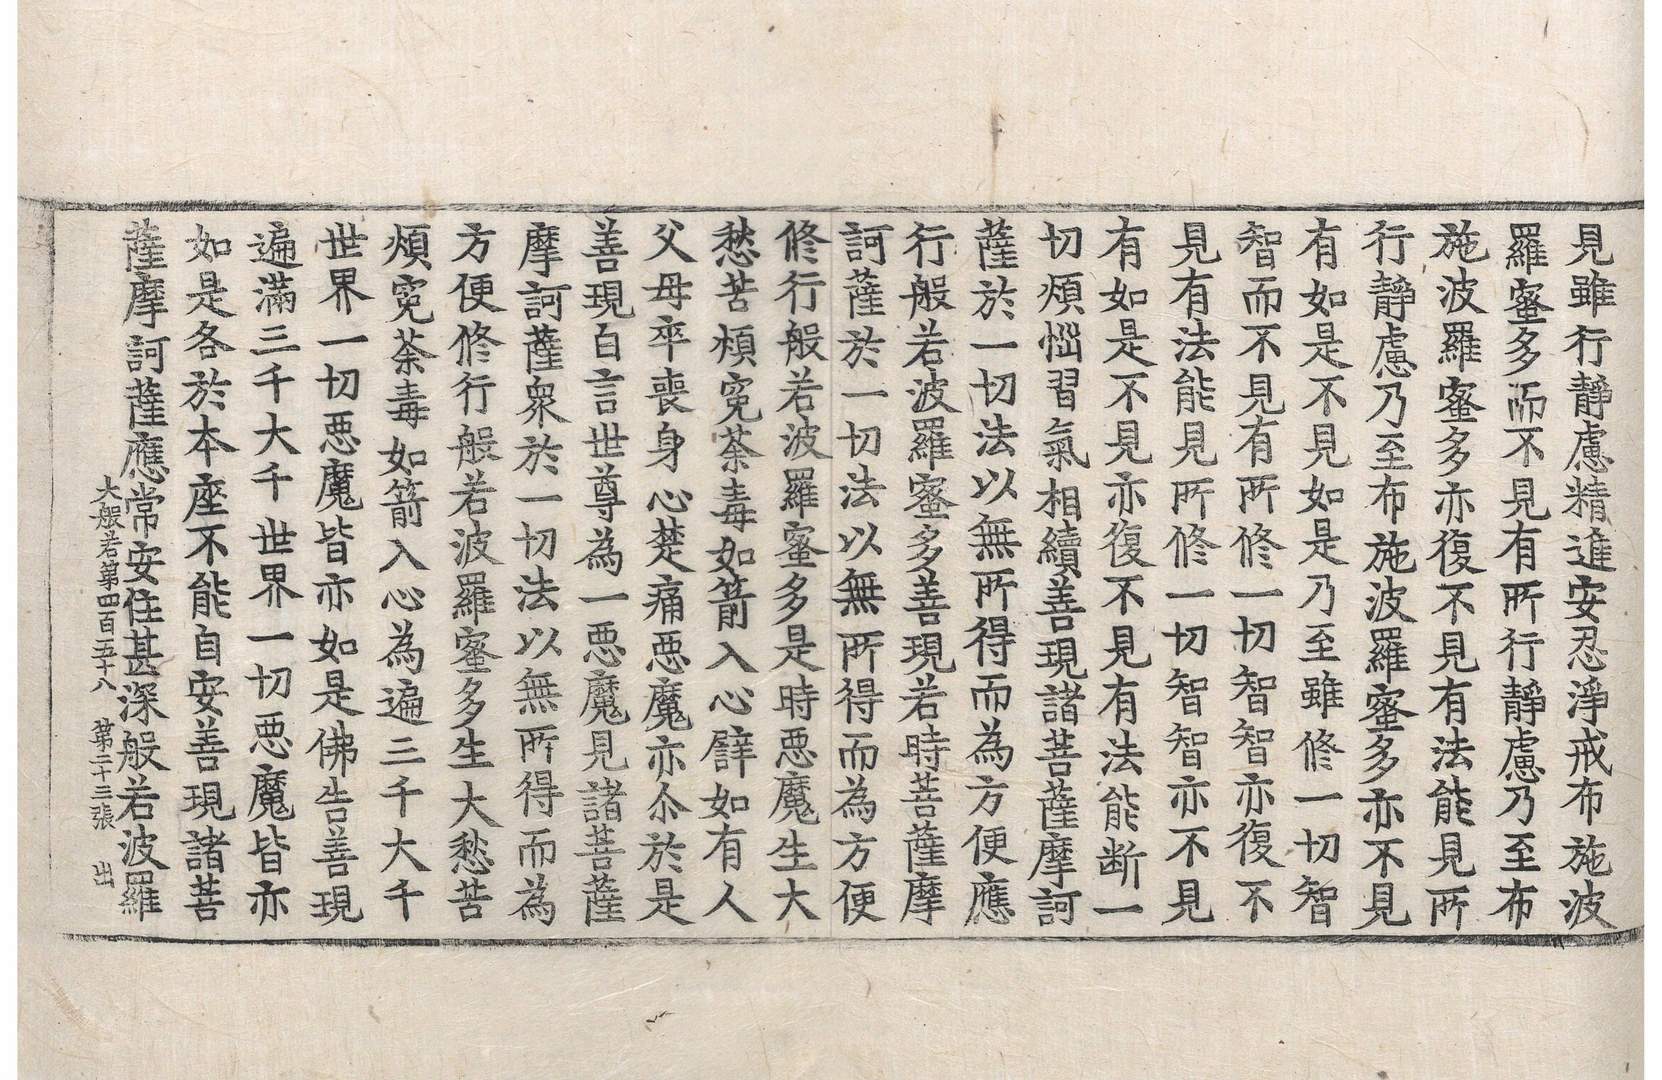 見雖行靜慮精進安忍淨戒布施波
羅蜜多而不見有所行靜慮乃至布
施波羅蜜多亦復不見有法能見所
行靜慮乃至布施波羅蜜多亦不見
有如是不見如是乃至雖修一切智
智而不見有所修一切智智亦復不
見有法能見所修一切智智亦不見
有如是不見亦復不見有法能断一
切煩惱習氣相續善現諸菩薩摩訶
薩於一切法以無所得而為方便應
行般若波羅蜜多善現若時菩薩摩
訶薩於一切法以無所得而為方便
修行般若波羅蜜多是時悪魔生大
愁苦煩冤荼毒如箭入心譬如有人
父母卒喪身心楚痛悪魔亦尒於是
善現白言世尊為一悪魔見諸菩薩
摩訶薩衆於一切法以無所得而為
方便修行般若波羅蜜多生大愁苦
煩冤荼毒如箭入心為遍三千大千
世界一切悪魔皆亦如是佛告善現
遍滿三千大千世界一切悪魔皆亦
如是各於本座不能自安善現諸菩
薩摩訶薩應常安住甚深般若波羅
大般若第四百五十八 第二十三張 出